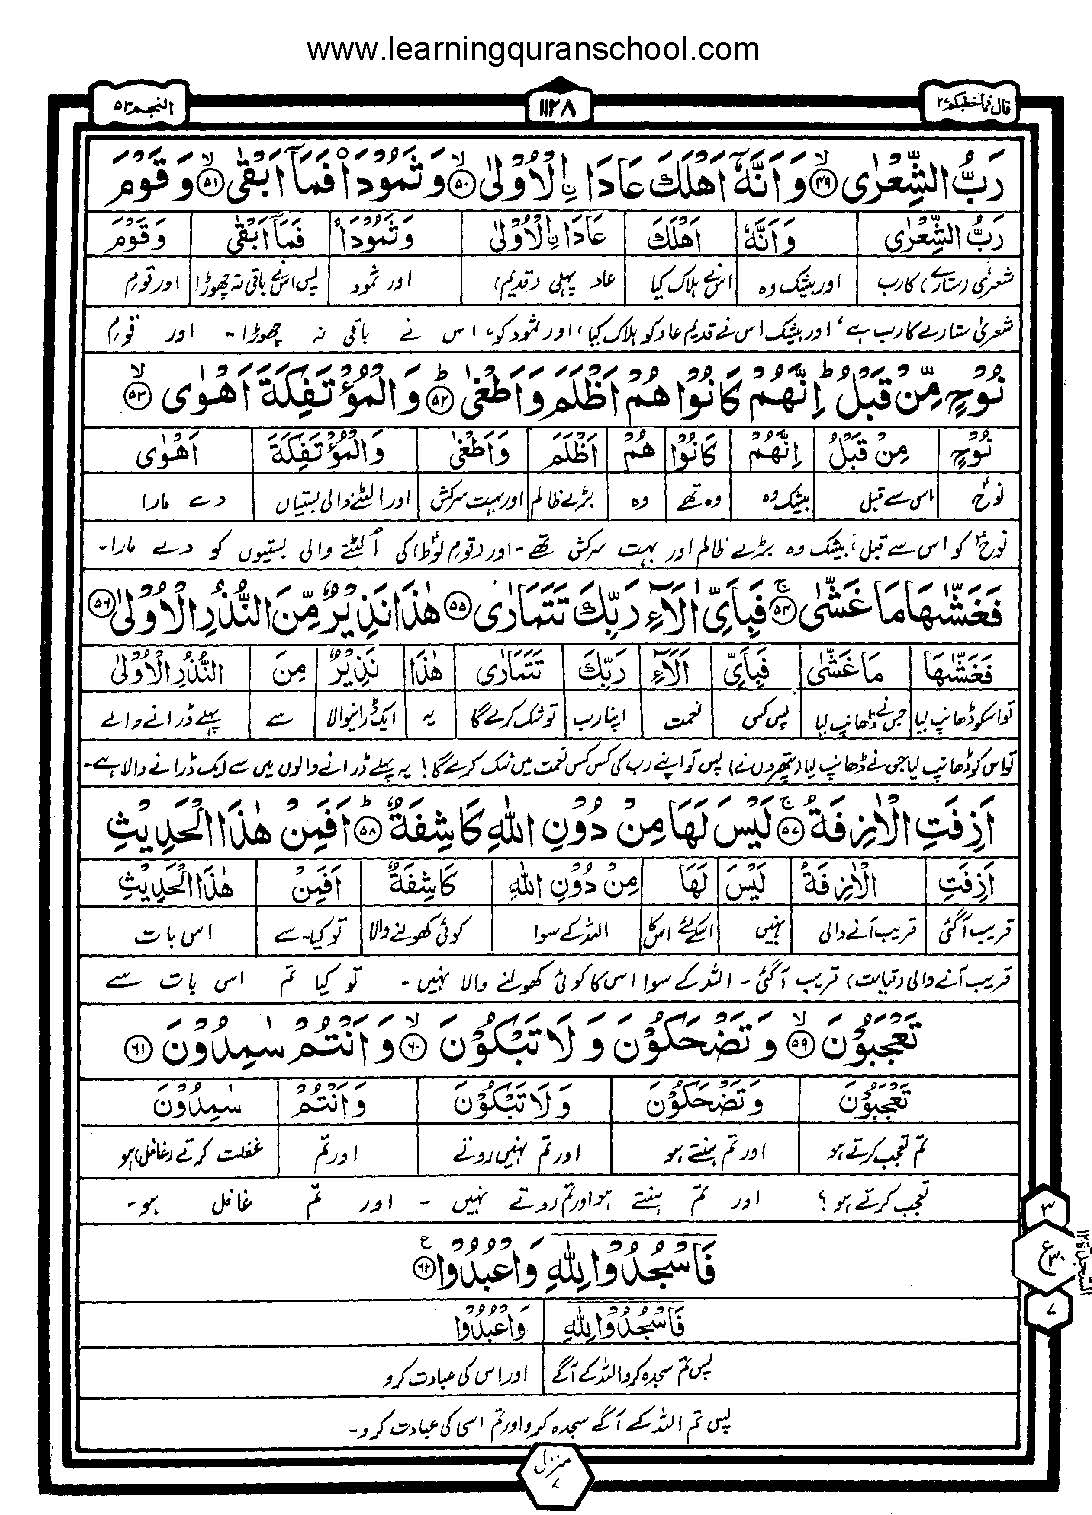 www.learningquranschool.com
قال فما خطبكم ٢٧
١١٢٨
النجم ٥٣
رَبُّ الشِّعْرٰى ﴿٤٩﴾ۙ وَاَنَّهٗۤ اَهْلَكَ عَادَا ۨالْاُوْلٰى ﴿٥٠﴾ۙ وَثَمُوْدَا۟ فَمَاۤ اَبْقٰى ﴿٥١﴾ۙ وَقَوْمَ
رَبُّ الشِّعْرٰى وَاَنَّهٗ اَهْلَكَ عَادَا ۨالْاُوْلٰى وَثَمُوْدَا۟ فَمَاۤ اَبْقٰى وَقَوْمَ
شعرٰی (ستارے) کا رب اور بیشک وہ اس نے ہلاک کیا عاد پہلی (قدیم) اور ثمود پس اس نے باقی نہ چھوڑا اور قوم
شعرٰی ستارے کا رب ہے، اور بیشک اس نے قدیم عاد کو ہلاک کیا، اور ثمود کو، اس نے باقی نہ چھوڑا۔ اور قوم
نُوْحٍ مِّنْ قَبْلُ ؕ اِنَّهُمْ كَانُوْا هُمْ اَظْلَمَ وَاَطْغٰى ﴿٥٢﴾ؕ وَالْمُؤْتَفِكَةَ اَهْوٰى ﴿٥٣﴾ۙ
نُوْحٍ مِنْ قَبْلُ اِنَّهُمْ كَانُوْا هُمْ اَظْلَمَ وَاَطْغٰى وَالْمُؤْتَفِكَةَ اَهْوٰى
نوحؑ اس سے قبل بیشک وہ وہ تھے وہ بڑے ظالم اور بہت سرکش اور الٹنے والی بستیاں دے مارا
نوحؑ کو اس سے قبل، بیشک وہ بڑے ظالم اور بہت سرکش تھے۔ اور (قوم لوط) کی الٹنے والی بستیوں کو دے مارا۔
فَغَشّٰىهَا مَا غَشّٰى ﴿٥٤﴾ۚ فَبِاَىِّ اٰلَآءِ رَبِّكَ تَتَمَارٰى ﴿٥٥﴾ هٰذَا نَذِيْرٌ مِّنَ النُّذُرِ الْاُوْلٰى ﴿٥٦﴾
فَغَشّٰىهَا مَا غَشّٰى فَبِاَىِّ اٰلَآءِ رَبِّكَ تَتَمَارٰى هٰذَا نَذِيْرٌ مِنَ النُّذُرِ الْاُوْلٰى
تو اسکو ڈھانپ لیا جس نے ڈھانپ لیا پس کس نعمت اپنا رب تو شک کرے گا یہ ایک ڈرانیوالا سے پہلے ڈرانے والے
تو اس کو ڈھانپ لیا جس نے ڈھانپ لیا (پتھروں نے) پس تو اپنے رب کی کس کس نعمت میں شک کرے گا! یہ پہلے ڈرانے والوں میں سے ایک ڈرانے والا ہے۔
اَزِفَتِ الْاٰزِفَةُ ﴿٥٧﴾ۚ لَيْسَ لَهَا مِنْ دُوْنِ اللّٰهِ كَاشِفَةٌ ﴿٥٨﴾ؕ اَفَمِنْ هٰذَا الْحَدِيْثِ
اَزِفَتِ الْاٰزِفَةُ لَيْسَ لَهَا مِنْ دُوْنِ اللّٰهِ كَاشِفَةٌ اَفَمِنْ هٰذَا الْحَدِيْثِ
قریب آگئی قریب آنے والی نہیں اسکے لئے اس کا اللہ کے سوا کوئی کھولنے والا تو کیا۔ سے اس بات
قریب آنے والی (قیامت) قریب آگئی۔ اللہ کے سوا اس کا کوئی کھولنے والا نہیں۔ تو کیا تم اس بات سے
تَعْجَبُوْنَ ﴿٥٩﴾ۙ وَتَضْحَكُوْنَ وَلَا تَبْكُوْنَ ﴿٦٠﴾ۙ وَاَنْتُمْ سٰمِدُوْنَ ﴿٦١﴾
تَعْجَبُوْنَ وَتَضْحَكُوْنَ وَلَا تَبْكُوْنَ وَاَنْتُمْ سٰمِدُوْنَ
تم تعجب کرتے ہو اور تم ہنستے ہو اور تم نہیں روتے اور تم غفلت کرتے (غافل) ہو
تعجب کرتے ہو؟ اور تم ہنستے ہو اور تم روتے نہیں۔ اور تم غافل ہو۔
٣
ع ٣٠
٧
السجدة ١٢
فَاسْجُدُوْا لِلّٰهِ وَاعْبُدُوْا ﴿٦٢﴾ع
فَاسْجُدُوْا لِلّٰهِ وَاعْبُدُوْا
پس تم سجدہ کرو اللہ کے آگے اور اس کی عبادت کرو
پس تم اللہ کے آگے سجدہ کرو اور تم اسی کی عبادت کرو۔
منزل ٧